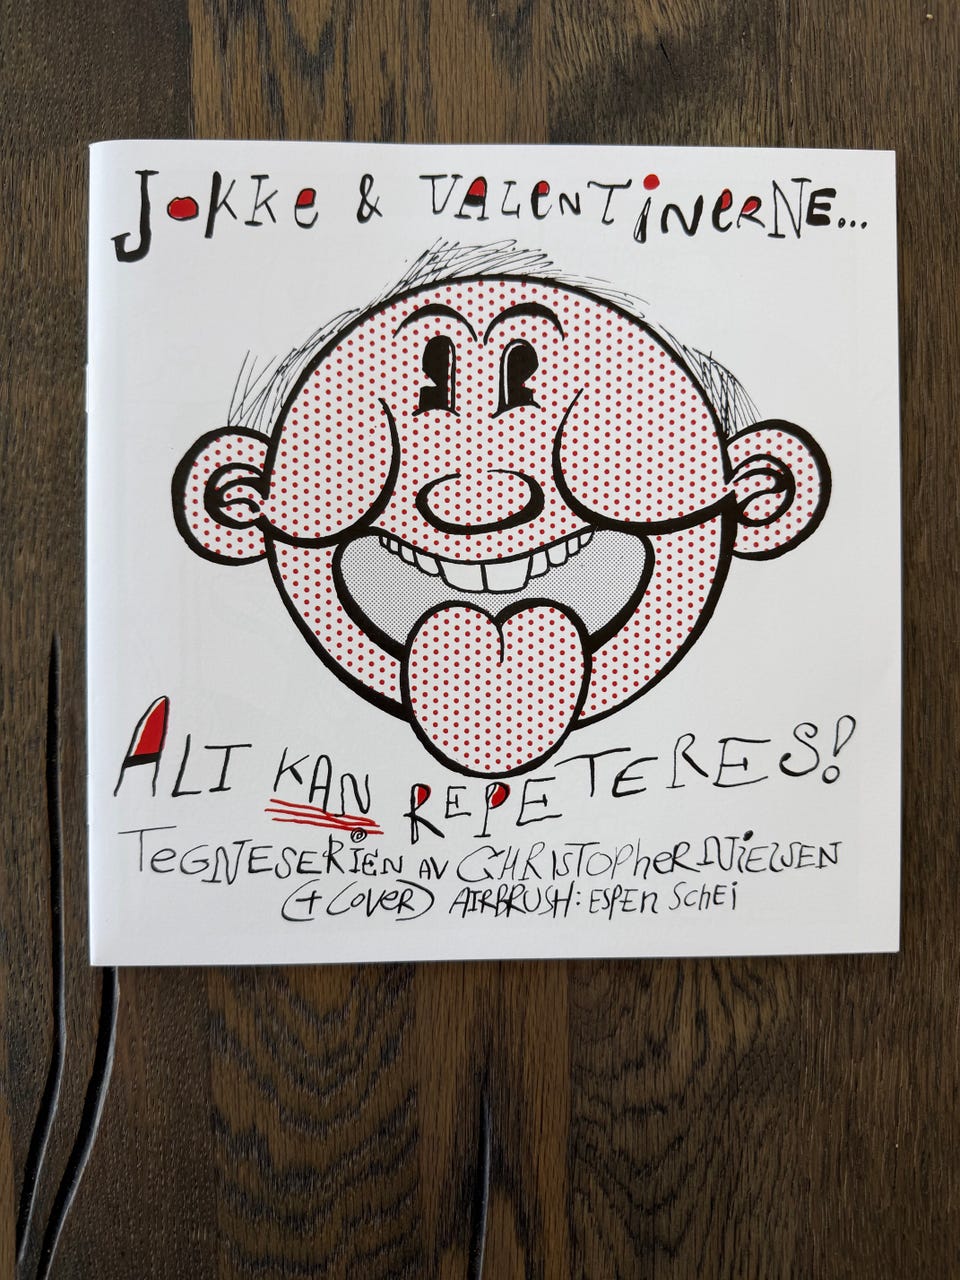 JOKKe & VALenTiNeRNE...
ALI KAN REPETERES!
TeGNESERiEN AV CHRISTOPheR NiELSEN
(+ COVeR) AIRBRUSH: ESPEn SCHEi